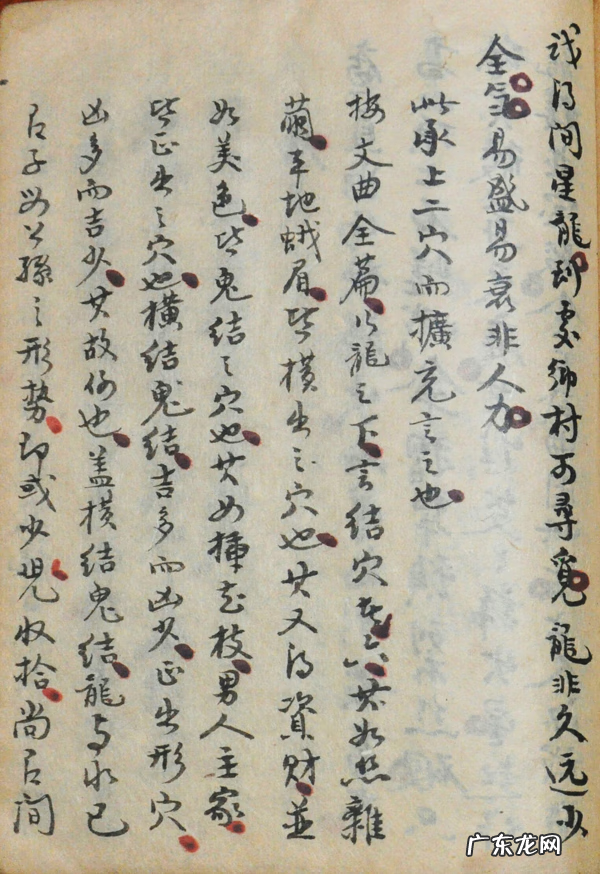 得间星龍却 鄉村可尋覓 龍非久遠少
全氣易盛易衰非人力
此承上二穴而擴充言之也
按文曲全篇以龍之下言結穴 六其如 雜
繭平地蛾眉皆横出之穴也其又得資財並
如美色皆鬼結之穴也其如揷花枝男人主家
皆正出之穴也横結鬼結吉多而凶少正出形穴
凶多而吉少其故何也盖横結鬼結龍与水已
有子母公孫之形勢即或少見收拾尚有间
广东龙网